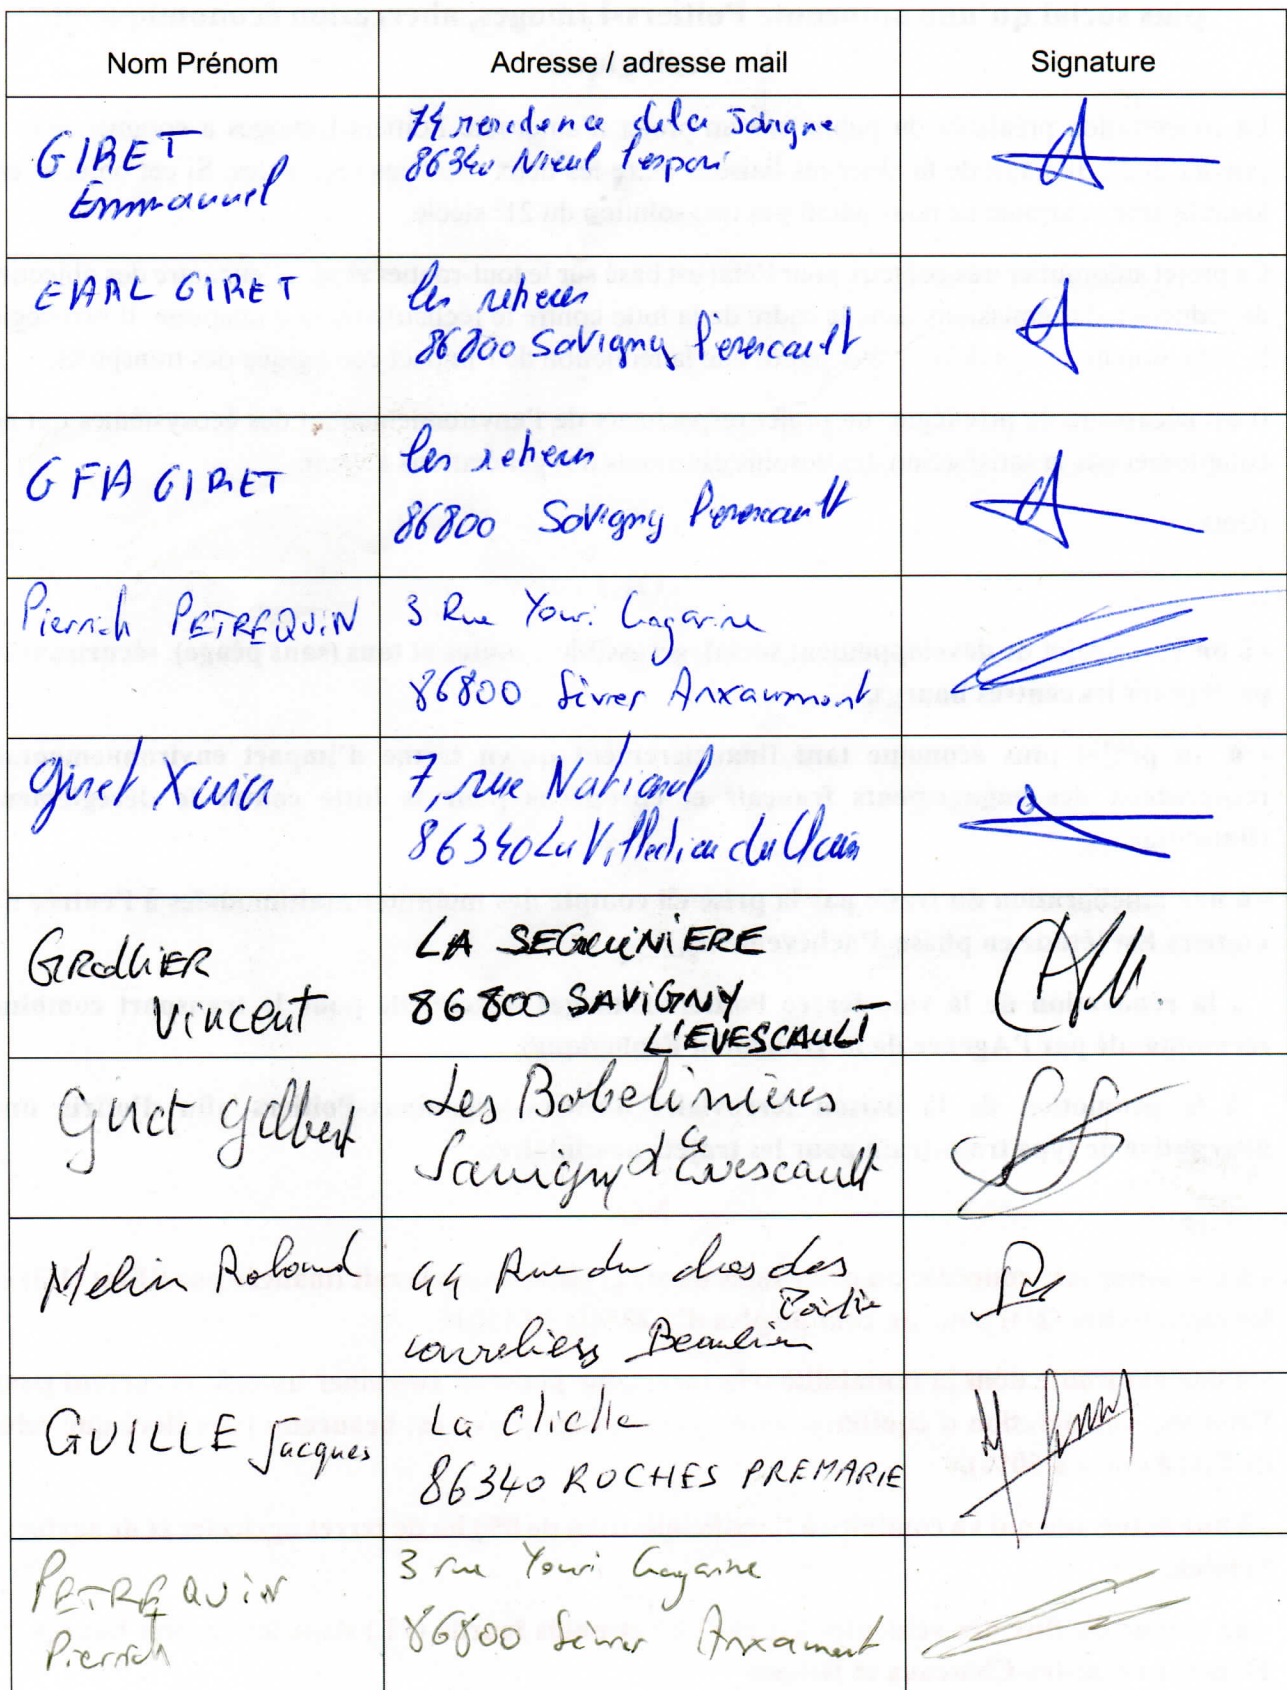 Nom Prénom Adresse / adresse mail Signature
GIRET
Emmanuel
74 residence de la
86340 Nieul l'espoir
EARL GIRET
les
86800 Savigny levescault
GFA GIRET
les
86800 Savigny levescault
Pierrich PETREQUIN
3 Rue Youri Gagarine
86800 Sèvres Anxaumont
Giret Xavier
7 rue National
86340 La Villedieu du Clain
GROLLIER
Vincent
LA SEGUINIERE
86800 SAVIGNY
L'EVESCAULT
Giret Gilbert
Les Bobelinières
Savigny l'Evescault
Melin Roland
44 Rue du clos des
Beaulieu
GUILLE Jacques
La Clielle
86340 ROCHES PREMARIE
PETREQUIN
Pierrich
3 rue Youri Gagarine
86800 Sèvres Anxaumont